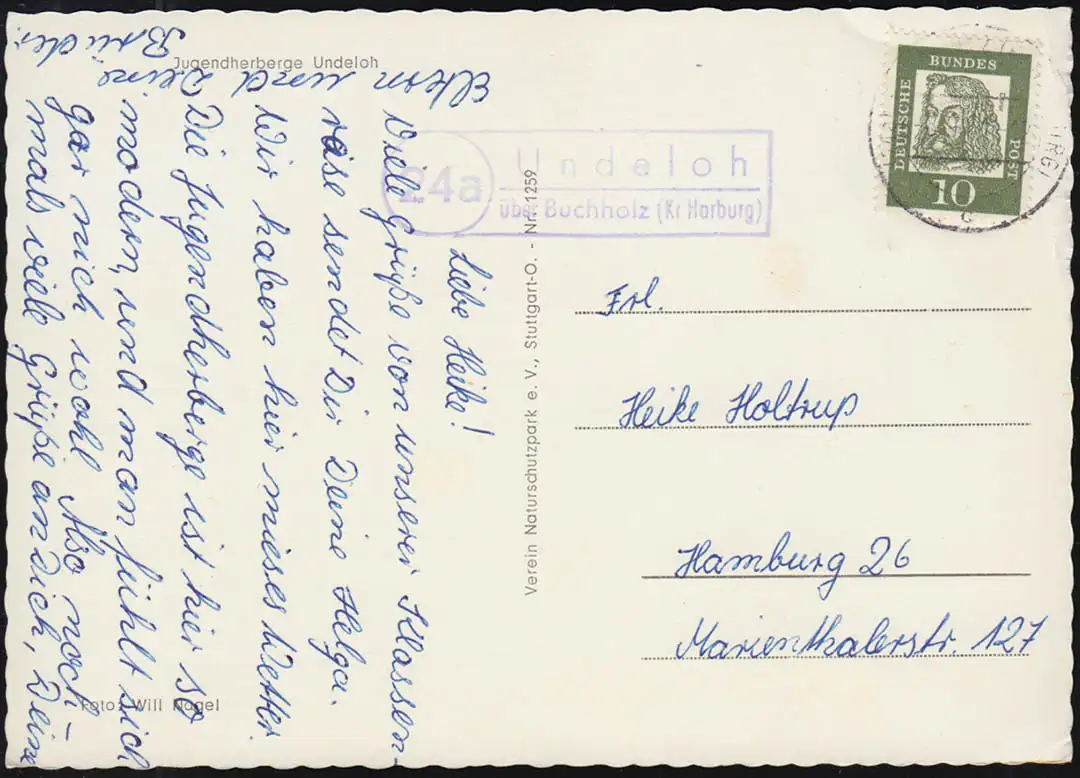 Jugendherberge Undeloh
Liebe Heike!
Viele Grüße von unserer Klassen-
reise sendet Dir Deine Helga.
Wir haben hier mieses Wetter.
Die Jugendherberge ist hier so
modern, und man fühlt sich
gar nicht wohl. Also noch-
mals viele Grüße an Dich, Deine
Eltern und Deine
Brüder.
Foto: Will Nagel
Verein Naturschutzpark e. V., Stuttgart-O. - Nr. 1259
24a
Undeloh
über Buchholz (Kr Harburg)
DEUTSCHE
BUNDES
POST
10
Frl.
Heike Holtrup
Hamburg 26
Marienthalerstr. 127